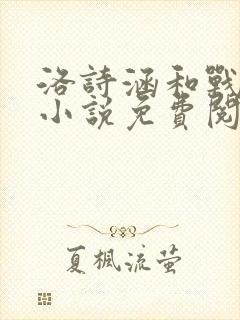 洛詩涵和戰
小説免費閱
夏楓流螢